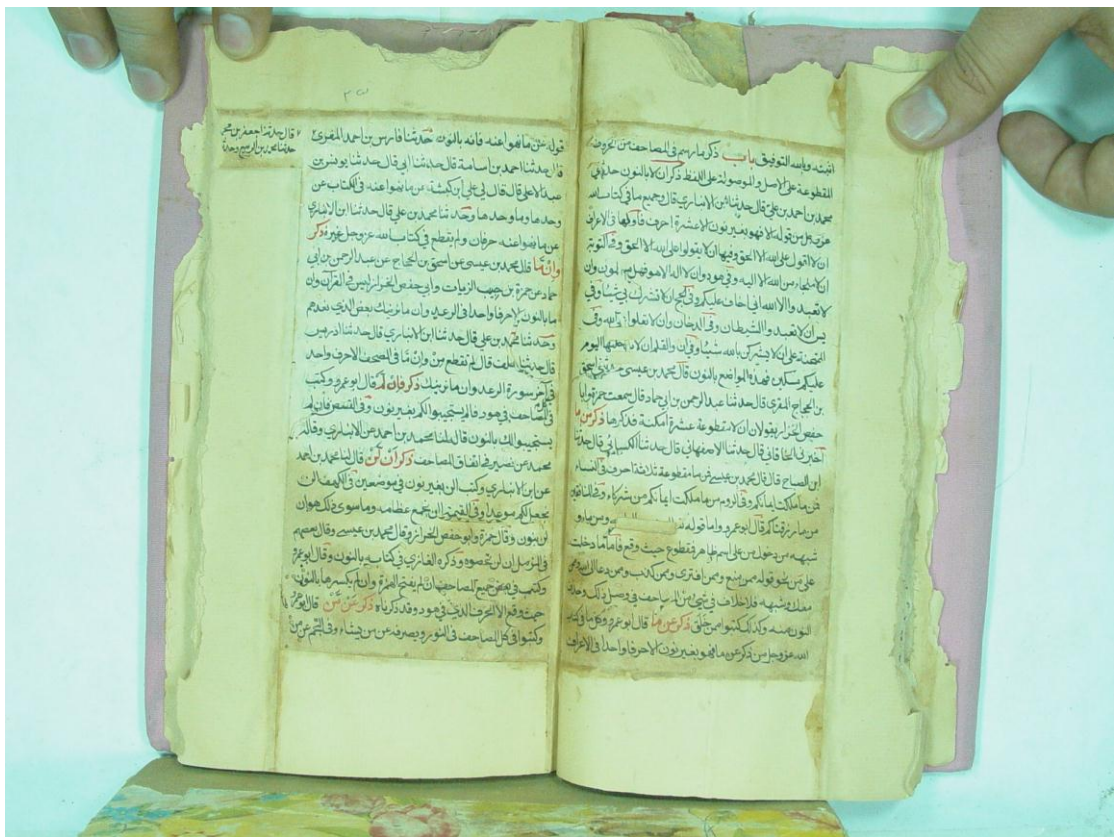 اثبته وبالله التوفيق باب ذكر ما رسم فى المصاحف من الحروف
المقطوعة على الاصل والموصولة على اللفظ ذكر ان لا بالنون حدثنى
محمد بن احمد بن على قال حدثنا ابن الانبارى قال وجميع ما فى كتاب الله
عز وجل من قوله الا فهو بغير نون الا عشرة احرف فاولها فى الاعراف
ان لا اقول على الله الا الحق وفيها ان لا يقولوا على الله الا الحق وفى التوبة
ان لا ملجاء من الله الا اليه وفى هود وان لا اله الا هو فهل انتم مسلمون وان
لا تعبدوا الا الله انى اخاف عليكم وفى الحج ان لا تشرك بى شيئا وفى
يس ان لا تعبدوا الشيطان وفى الدخان وان لا تعلوا على الله وفى
الممتحنة على ان لا يشركن بالله شيئا وفى ن والقلم ان لا يدخلنها اليوم
عليكم مسكين فهذه المواضع بالنون قال محمد بن عيسى حدثنى اسحق
بن الحجاج المقرى قال حدثنا عبد الرحمن بن ابى حماد قال سمعت حمزة وابا
حفص الخزاز يقولان ان لا مقطوعة عشرة امكنة فذكرها ذكر من ما
اخبرنى الخاقانى قال حدثنا الاصفهانى قال حدثنا الكسائى قال حدثنا
ابن الصباح قال قال محمد بن عيسى من ما مقطوعة ثلاثة احرف فى النساء
فمن ما ملكت ايمانكم وفى الروم من ما ملكت ايمانكم من شركاء وفى المنافقون
من ما رزقناكم قال ابو عمرو واما قوله من ومن ما و
شبهه من دخول من على اسم ظاهر فمقطوع حيث وقع فاما اذا دخلت
على من نحو قوله ممن منع وممن افترى وممن كذب وممن دعا الى الله ومن
معك وشبهه فلا خلاف فى شىء من المصاحف فى وصل ذلك وحذف
النون منه وكذلك كتبوا مم خلق ذكر عن ما قال ابو عمرو وكل ما فى كتاب
الله عز وجل من ذكر عن ما فهو بغير نون الا حرفا واحدا فى الاعراف
قوله عن ما نهوا عنه فانه بالنون حدثنا فارس بن احمد المقرئ
قال حدثنا جعفر بن محمد
حدثنا محمد بن الربيع وحدثنا
قال حدثنا احمد بن اسامة قال حدثنا ابى قال حدثنا يونس بن
عبد الاعلى قال قال لى على ابن كبشة عن ما نهوا عنه فى الكتاب عن
وحدها وما وحدها وحدثنا محمد بن على قال حدثنا ابن الانبارى
عن ما نهوا عنه حرفان ولم يقطع فى كتاب الله عز وجل غيره ذكر
وان ما قال محمد بن عيسى عن اسحق بن الحجاج عن عبد الرحمن بن ابى
حماد عن حمزة بن حبيب الزيات وابى حفص الخزاز ليس فى القرآن وان
ما بالنون الا حرفا واحدا فى الرعد وان ما نرينك بعض الذى نعدهم
وحدثنا محمد بن على قال حدثنا ابن الانبارى قال حدثنا ادريس
قال حدثنا خلف قال لم تقطع من وان ما فى المصحف الا حرف واحد
فى آخر سورة الرعد وان ما نرينك ذكر فان لم قال ابو عمرو وكتب
فى المصاحف فى هود فالم يستجيبوا لكم بغير نون وفى القصص فان لم
يستجيبوا لك بالنون قال لنا محمد بن احمد عن الانبارى وقاله
محمد عن نصير فى اتفاق المصاحف ذكر ان لن قال لنا محمد بن احمد
عن ابن الانبارى وكتب الن بغير نون فى موضعين فى الكهف الن
نجعل لكم موعدا وفى القيمة الن نجمع عظامه وما سوى ذلك هو ان
لن بنون وقال حمزة وابو حفص الخزاز وقال محمد بن عيسى وقال بعضهم
فى المزمل ان لن تحصوه وذكره الغازى فى كتابه بالنون وقال ابو عمرو
وكتب فى بعض جميع المصاحف ان لم بفتح الهمزة وان لم بكسرها بالنون
حيث وقع الا الحرف الذى فى هود وقد ذكرناه ذكر عن من قال ابو عمرو
وكتبوا فى كل المصاحف فى النور ويصرفه عن من يشاء وفى النجم عن من